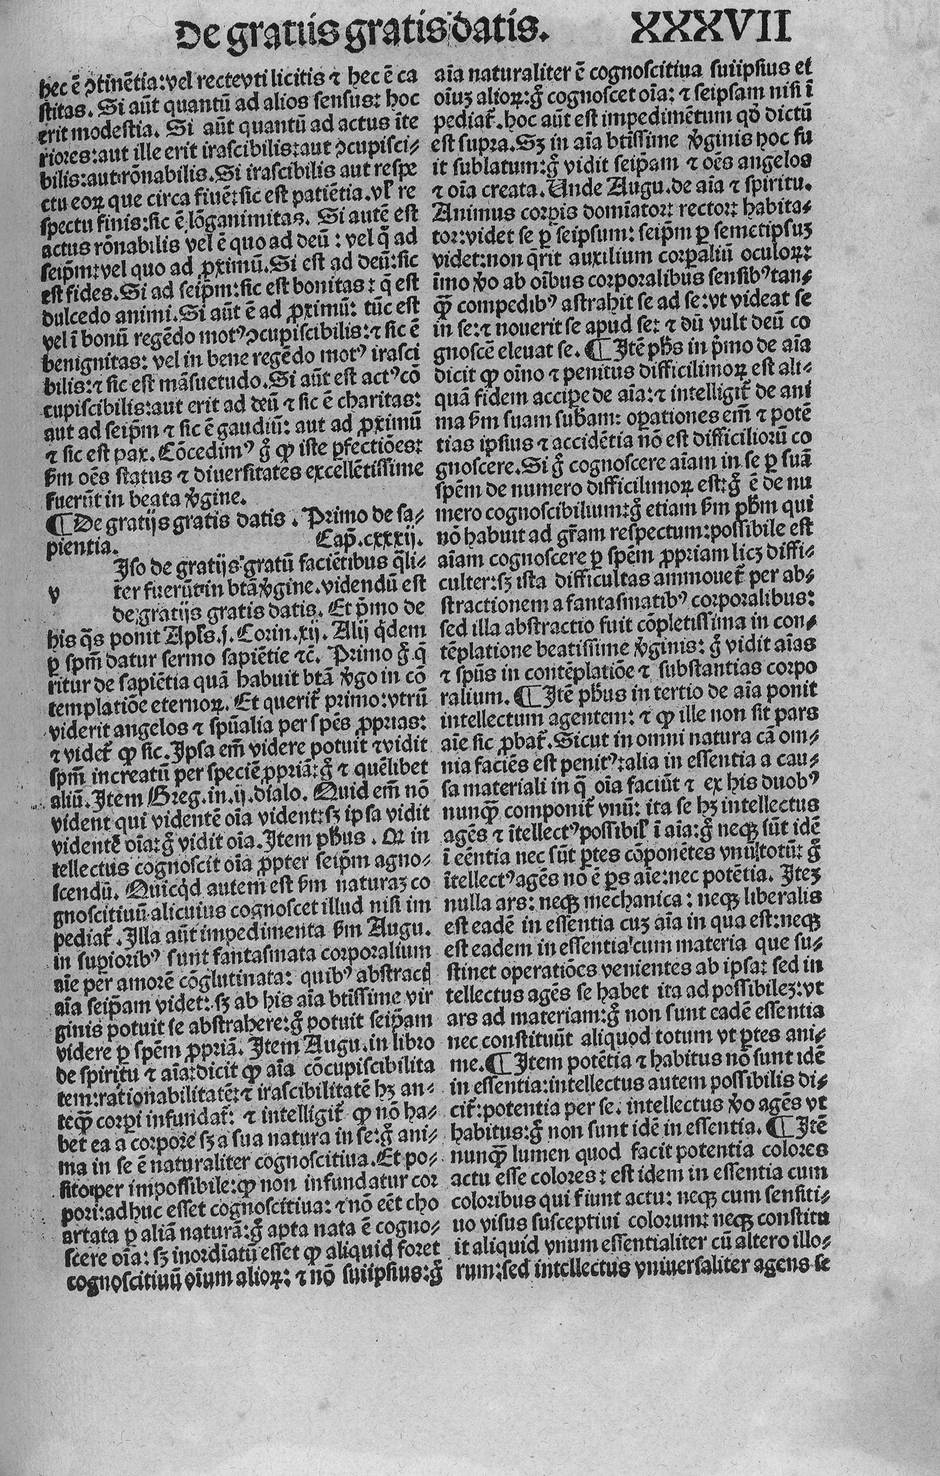 De gratiis gratis datis. XXXVII
hec ē ꝯtinētia: vel recte vti licitis ⁊ hec ē ca
stitas. Si aūt quantū ad alios sensus: hoc
erit modestia. Si aūt quantū ad actus īte
riores: aut ille erit irascibilis: aut ꝯcupisci-
bilis: aut rōnabilis. Si irascibilis aut respe
ctu eoꝝ que circa fiūt: sic est patiētia. vl̓ re
spectu finis: sic ē lōganimitas. Si autē est
actus rōnabilis vel ē quo ad deū: vel q̄ ad
seip̄m: vel quo ad ꝓximū. Si est ad deū: sic
est fides. Si ad seip̄m: sic est bonitas: q̄ est
dulcedo animi. Si aūt ē ad ꝓximū: tūc est
vel ī bonū regēdo motꝰ ꝯcupiscibilis: ⁊ sic ē
benignitas: vel in bene regēdo motꝰ irasci
bilis: ⁊ sic est māsuetudo. Si aūt est actꝰ cō
cupiscibilis: aut erit ad deū ⁊ sic ē charitas:
aut ad seip̄m ⁊ sic ē gaudiū: aut ad ꝓximū
⁊ sic est pax. Cōcedimꝰ g̊ ꝙ iste ꝑfectiōes:
ẜm oēs status ⁊ diuersitates excellētissime
fuerūt in beata v̓gine.
¶ De gratijs gratis datis. Primo de sa-
pientia. Cap̄. cxxxij.
v Iso de gratijs gratū faciētibus q̄li-
ter fuerūt in btā v̓gine. videndū est
de gratijs gratis datis. Et p̄mo de
his q̄s ponit Apl̓s. j. Corin. xij. Alij q̇dem
ꝑ sp̄m datur sermo sapiētie ⁊c̄. Primo g̊ q̄
ritur de sapiētia quā habuit btā v̓go in cō
templatiōe eternoꝝ. Et querit̄ primo: vtrū
viderit angelos ⁊ spūalia per sp̄es ꝓprias:
⁊ videt̄ ꝙ sic. Ipsa em̄ videre potuit ⁊ vidit
sp̄m increatū per speciē ꝓpriā: g̊ ⁊ quēlibet
aliū. Item Greg. in. ij. dialo. Quid em̄ nō
vident qui videntē oīa vident: sꝫ ipsa vidit
videntē oīa: g̊ vidit oīa. Item ph̄us. Oī in
tellectus cognoscit oīa ꝓpter seip̄m agno-
scendū. Quicq̇d autem est ẜm naturaꝫ co
gnoscitiuū alicuius cognoscet illud nisi im
pediat̄. Illa aūt impedimenta ẜm Augu.
in supioribꝰ sunt fantasmata corporalium
aīe per amorē cōglutinata: quibꝰ abstracꝭ
aīa seip̄am videt: sꝫ ab his aīa btīssime vir
ginis potuit se abstrahere: g̊ potuit seip̄am
videre ꝑ sp̄em ꝓpriā. Item Augu. in libro
de spiritu ⁊ aīa: dicit ꝙ aīa cōcupiscibilita
tem: rationabilitatē: ⁊ irascibilitatē hꝫ an-
teꝙ̄ corpi infundat̄: ⁊ intelligit̄ ꝙ nō ha-
bet ea a corpore sꝫ a sua natura in se: g̊ ani-
ma in se ē naturaliter cognoscitiua. Et po-
sito per impossibile: ꝙ non infundatur cor
pori: adhuc esset cognoscitiua: ⁊ nō eēt cho
artata ꝑ aliā naturā: g̊ apta nata ē cogno-
scere oīa: sꝫ inordīatū esset ꝙ aliquid foret
cognoscitiuū oīum alioꝝ: ⁊ nō suiipsius: g̊
aīa naturaliter ē cognoscitiua suiipsius et
oīuꝫ alioꝝ: g̊ cognoscet oīa: ⁊ seipsam nisi ī
pediat̄. hoc aūt est impedimētum qd̓ dictū
est supra. Sꝫ in aīa btīssime v̓ginis hoc fu
it sublatum: g̊ vidit seip̄am ⁊ oēs angelos
⁊ oīa creata. Unde Augu. de aīa ⁊ spiritu.
Animus corpis domīator: rector: habita-
tor: videt se ꝑ seipsum: seip̄m ꝑ semetipsuꝫ
videt: non q̄rit auxilium corꝑaliū oculoꝝ:
īmo v̓o ab oībus corporalibus sensibꝰ tan-
ꝙ̄ compedibꝰ astrahit se ad se: vt videat se
in se: ⁊ nouerit se apud se: ⁊ dū vult deū co
gnoscē eleuat se. ¶ Itē ph̄s in p̄mo de aīa
dicit ꝙ oīno ⁊ penitus difficilimoꝝ est ali-
quā fidem accipe de aīa: ⁊ intelligit̄ de ani
ma ẜm suam sub̄am: oꝑationes em̄ ⁊ potē
tias ipsius ⁊ accidētia nō est difficiliorū co
gnoscere. Si g̊ cognoscere aīam in se ꝑ suā
sp̄em de numero difficilimoꝝ est: g̊ ē de nu
mero cognoscibilium: g̊ etiam ẜm ph̄m qui
nō habuit ad gr̄am respectum: possibile est
aīam cognoscere ꝑ sp̄em ꝓpriam licꝫ diffi-
culter: sꝫ ista difficultas ammouet̄ per ab-
stractionem a fantasmatibꝰ corporalibus:
sed illa abstractio fuit cōpletissima in con-
tēplatione beatissime v̓ginis: g̊ vidit aīas
⁊ spūs in contēplatiōe ⁊ substantias corpo
ralium. ¶ Itē ph̄us in tertio de aīa ponit
intellectum agentem: ⁊ ꝙ ille non sit pars
aīe sic ꝓbat̄. Sicut in omni natura cā om-
nia faciēs est penitꝰ: alia in essentia a cau-
sa materiali in q̄ oīa faciūt ⁊ ex his duobꝰ
nunꝙ̄ componit̄ vnū: ita se hꝫ intellectus
agēs ⁊ ītellectꝰ possibil̓ ī aīa: g̊ neqꝫ sūt idē
ī eēntia nec sūt ꝑtes cōponētes vnū totū: g̊
ītellectꝰ agēs nō ē ꝑs aīe: nec potētia. Iteꝫ
nulla ars: neqꝫ mechanica: neqꝫ liberalis
est eadē in essentia cuꝫ aīa in qua est: neqꝫ
est eadem in essentia cum materia que su-
stinet operatiōes venientes ab ipsa: sed in
tellectus agēs se habet ita ad possibileꝫ: vt
ars ad materiam: g̊ non sunt eadē essentia
nec constituūt aliquod totum vt ꝑtes ani-
me. ¶ Item potētia ⁊ habitus nō sunt idē
in essentia: intellectus autem possibilis di-
cit̄: potentia per se. intellectus v̓o agēs vt
habitus: g̊ non sunt idē in essentia. ¶ Itē
nunꝙ̄ lumen quod facit potentia colores
actu esse colores: est idem in essentia cum
coloribus qui fiunt actu: neqꝫ cum sensiti-
uo visus susceptiui colorum: neqꝫ constitu
it aliquid vnum essentialiter cū altero illo-
rum: sed intellectus vniuersaliter agens se